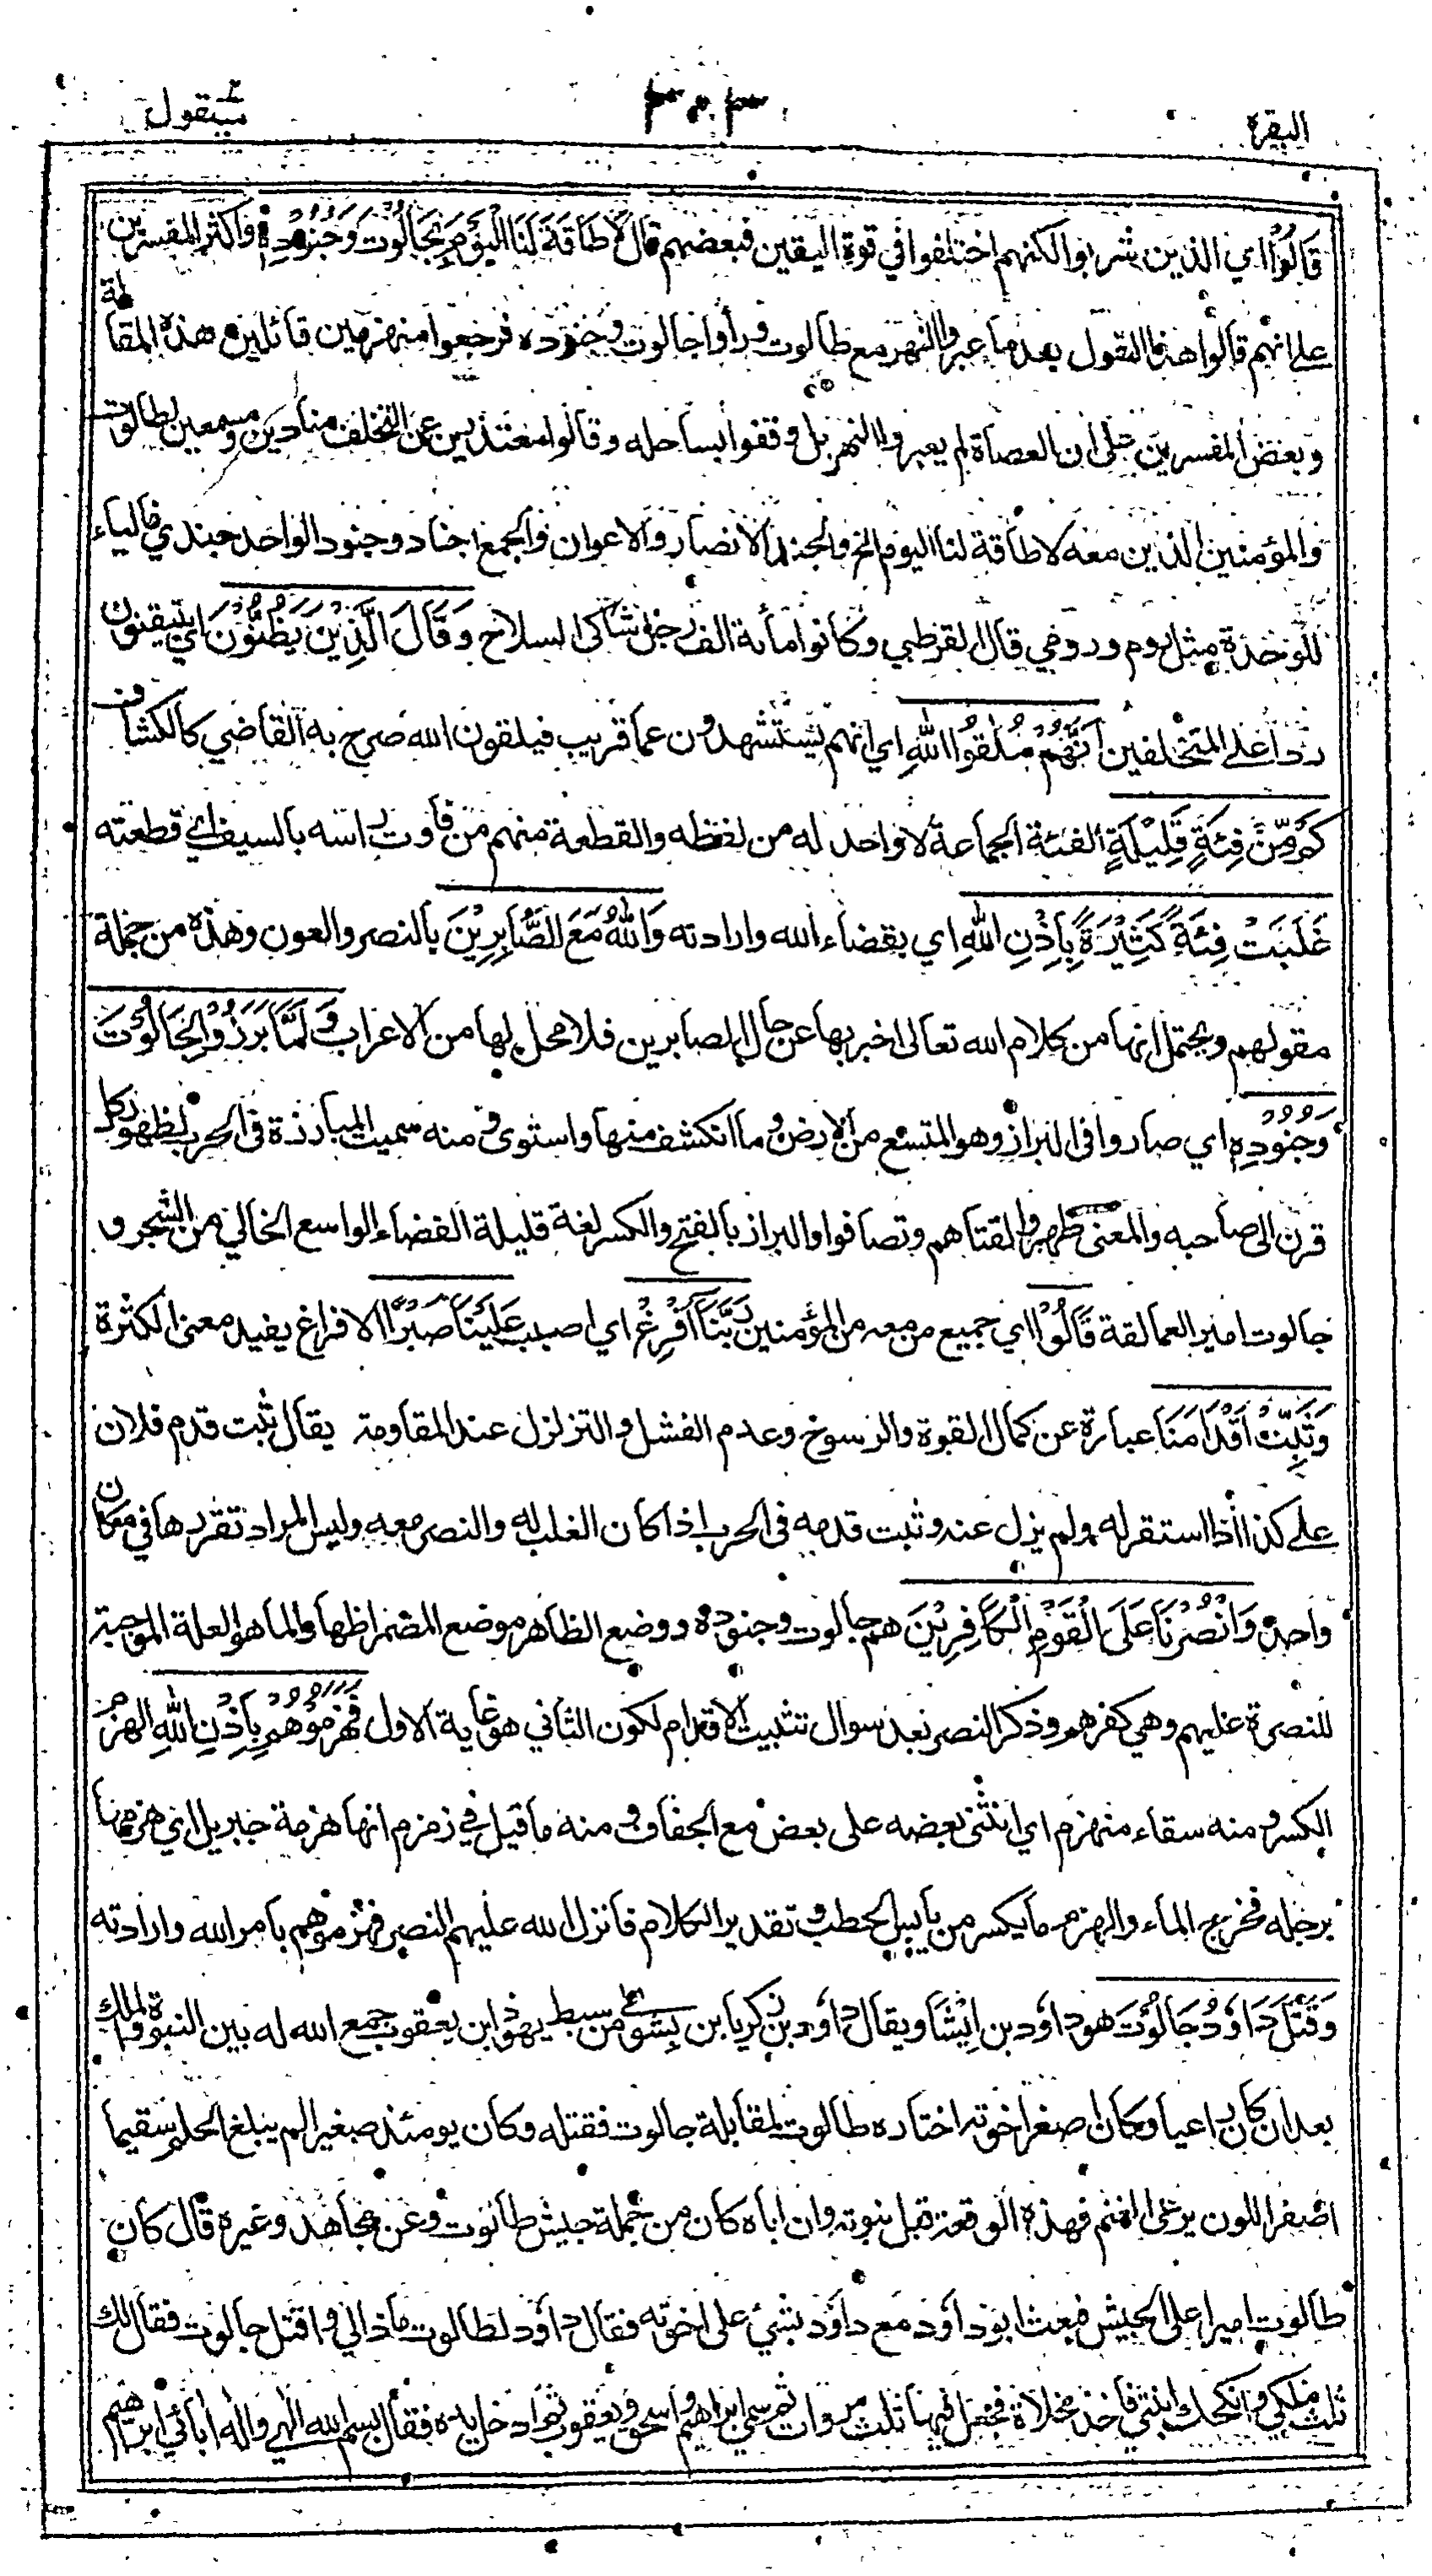 البقرة
٣٠٣
سيقول
قَالُوْا اي الذين شربوا لكنهم اختلفوا في قوة اليقين فبعضهم قال لَا طَاقَةَ لَنَا الْيَوْمَ بِجَالُوْتَ وَجُنُوْدِهٖ واكثر المفسرين
على انهم قالوا هذا القول بعد ما عبروا النهر مع طالوت ورأوا جالوت وجنوده فرجعوا منهزمين قائلين هذه المقالة
وبعض المفسرين على ان العصاة لم يعبروا النهر بل وقفوا بساحله وقالوا معتذرين عن التخلف منادين ومسمعين لطالوت
والمؤمنين الذين معه لا طاقة لنا اليوم الخ والجند الانصار والاعوان والجمع اجناد وجنود الواحد جندي فالياء
للوحدة مثل روم ورومي قال القرظبي وكانوا مائة الف رجل شاكى السلاح وَقَالَ الَّذِيْنَ يَظُنُّوْنَ اي يتيقنون
ردا على المتخلفين اَنَّهُمْ مُلٰقُوا اللّٰهِ اي انهم يستشهدون عما قريب فيلقون الله صرح به القاضي كالكشاف
كَمْ مِّنْ فِئَةٍ قَلِيْلَةٍ الفئة الجماعة لا واحد له من لفظه والقطعة منهم من فأوت رأسه بالسيف اي قطعته
غَلَبَتْ فِئَةً كَثِيْرَةً بِاِذْنِ اللّٰهِ اي بقضاء الله وارادته وَاللّٰهُ مَعَ الصَّابِرِيْنَ بالنصر والعون وهذه من جملة
مقولهم ويحتمل انها من كلام الله تعالى اخبر بها عن حال الصابرين فلا محل لها من الاعراب وَلَمَّا بَرَزُوْا لِجَالُوْتَ
وَجُنُوْدِهٖ اي صاروا في البراز وهو المتسع من الارض وما انكشف منها واستوى و منه سميت المبارزة في الحرب لظهور كل
قرن الى صاحبه والمعنى ظهروا لقتالهم وتصافوا والبراز بالفتح والكسر لغة قليلة الفضاء الواسع الخالي من الشجر و
جالوت امير العمالقة قَالُوْا اي جميع من معه من المؤمنين رَبَّنَا اَفْرِغْ اي اصبب عَلَيْنَا صَبْرًا الافراغ يفيد معنى الكثرة
وَثَبِّتْ اَقْدَامَنَا عبارة عن كمال القوة والرسوخ وعدم الفشل والتزلزل عند المقاومة يقال ثبت قدم فلان
على كذا اذا استقر له ولم يزل عنه وثبت قدمه في الحرب اذا كان الغلب له والنصر معه وليس المراد تقررها في مكان
واحد وَانْصُرْنَا عَلَى الْقَوْمِ الْكَافِرِيْنَ هم جالوت وجنوده ووضع الظاهر موضع المضمر اظهارا لما هو العلة الموجبة
للنصرة عليهم وهي كفرهم وذكر النصر بعد سوال تثبيت الاقدام لكون الثاني هو غاية الاول فَهَزَمُوْهُمْ بِاِذْنِ اللّٰهِ الهزم
الكسر و منه سقاء منهزم اي انثنى بعضه على بعض مع الجفاف و منه ما قيل في زمزم انها هزمة جبريل اي هزمها
برجله فخرج الماء والهزم ما يكسر من يابس الحطب و تقدير الكلام فانزل الله عليهم النصر فهزموهم بامر الله وارادته
وَقَتَلَ دَاوٗدُ جَالُوْتَ هو داود بن اِيْشَا ويقال داود بن زكريا ابن بِشْوِي من سبط يهوذ ابن يعقوب جمع الله له بين النبوة والملك
بعد ان كان راعيا وكان اصغر اخوته اختاره طالوت لمقابلة جالوت فقتله وكان يومئذ صغيرا لم يبلغ الحلم سقيما
اصفر اللون يرعى الغنم فهذه الوقعة قبل نبوته وان اباه كان من جملة جيش طالوت وعن مجاهد وغيره قال كان
طالوت اميرا على الجيش فبعث ابو داود مع داود بشئ على اخوته فقال داود لطالوت ماذا لي واقتل جالوت فقال لك
ثلث ملكي وانكحك ابنتي فاخذ مخلاة فجعل فيها ثلث مروات ثم سمى ابراهيم واسحق ويعقوب ثم ادخل يده فقال بسم الله الهي واله ابائي ابراهيم